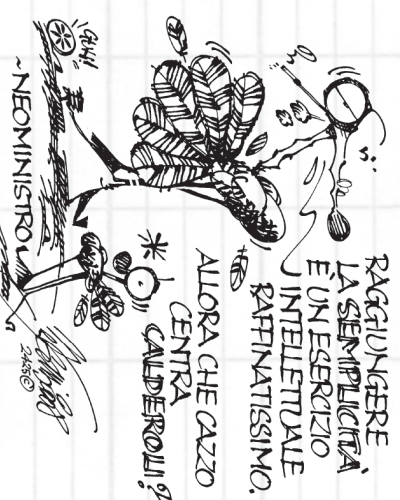 RAGGIUNGERE
LA SEMPLICITÀ
È UN ESERCIZIO
INTELETTUALE
RAFFINATISSIMO.
ALLORA CHE CAZZO
CENTRA
CALDEROLI?
~NEOMINISTRO